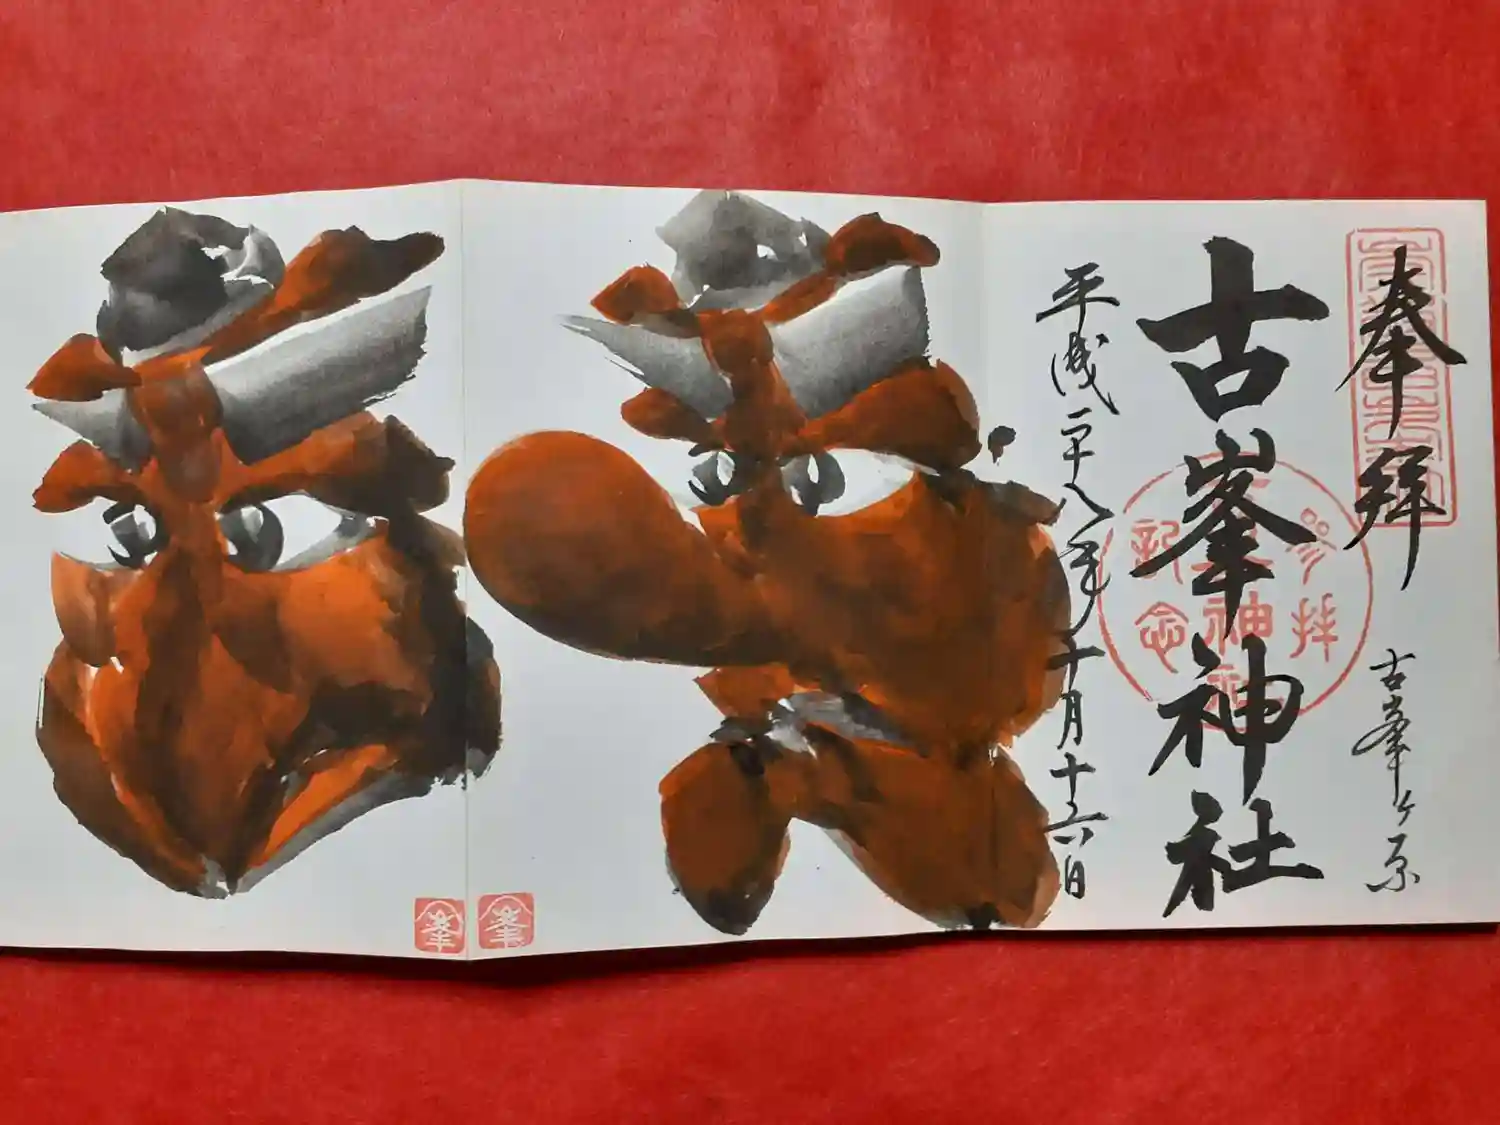 奉拝
古峯ヶ原
古峯神社
参拝
記念
平成二十八年十月十六日
峯
峯